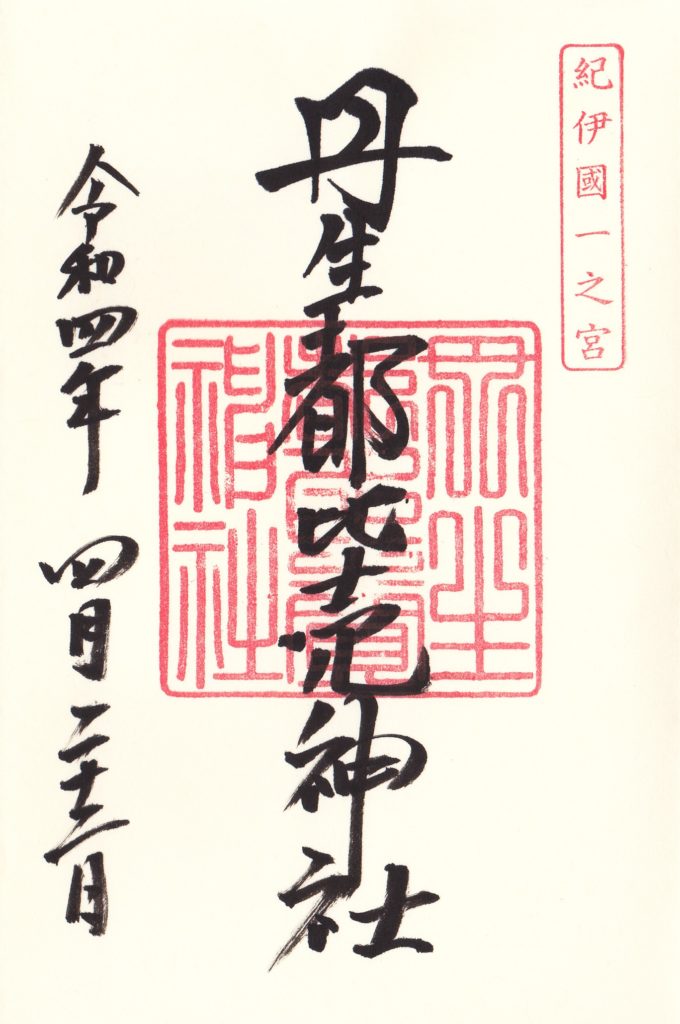 紀伊國一之宮
丹生都比売神社
丹生
都比賣
神社
令和四年 四月二十二日